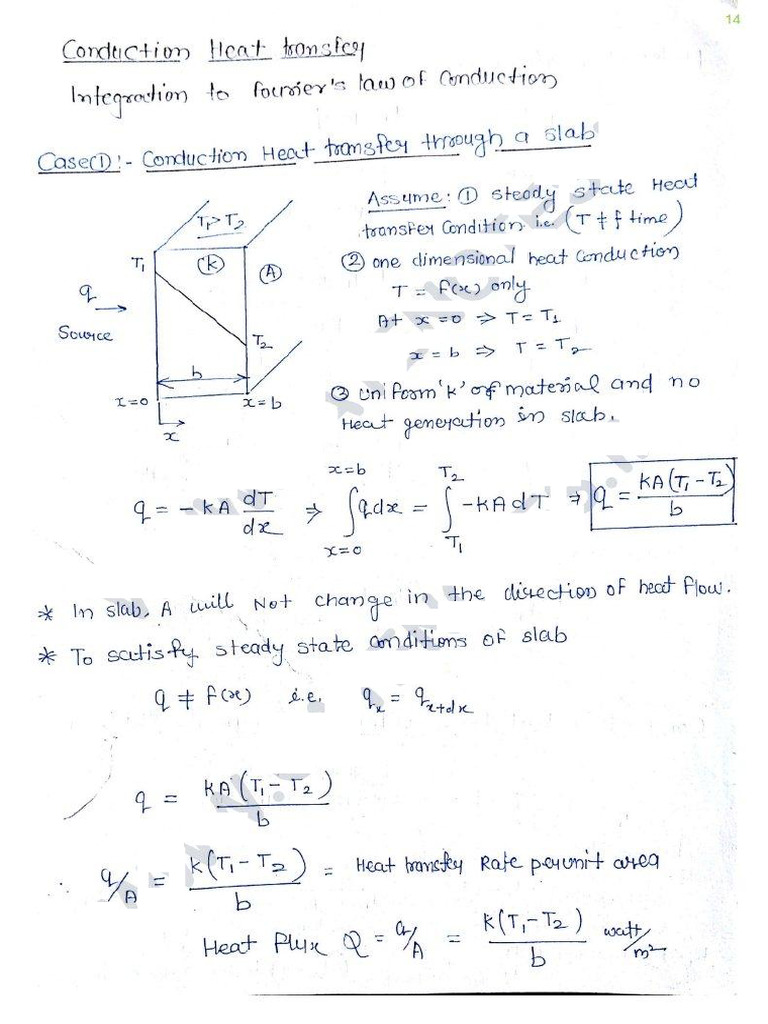 14
Conduction Heat transfer
Integration to fourier's law of conduction
Case(1):- Conduction Heat transfer through a slab
Assume: ① steady state Heat
transfer Condition i.e. (T ≠ f time)
② one dimensional heat conduction
T = f(x) only
At x=0 ⇒ T=T₁
x=b ⇒ T=T₂
③ uniform 'k' of material and no
Heat generation in slab.
T₁>T₂
T₁
K
A
q
Source
T₂
b
x=0
x=b
x
q = -kA dT/dx ⇒ ∫_{x=0}^{x=b} q dx = ∫_{T₁}^{T₂} -kA dT ⇒ q = kA(T₁-T₂)/b
* In slab, A will Not change in the direction of heat flow.
* To satisfy steady state conditions of slab
q ≠ f(x) i.e. qₓ = q_{x+dx}
q = kA(T₁-T₂)/b
∴ q/A = k(T₁-T₂)/b = Heat transfer Rate per unit area
Heat flux Q = q/A = k(T₁-T₂)/b watt/m²